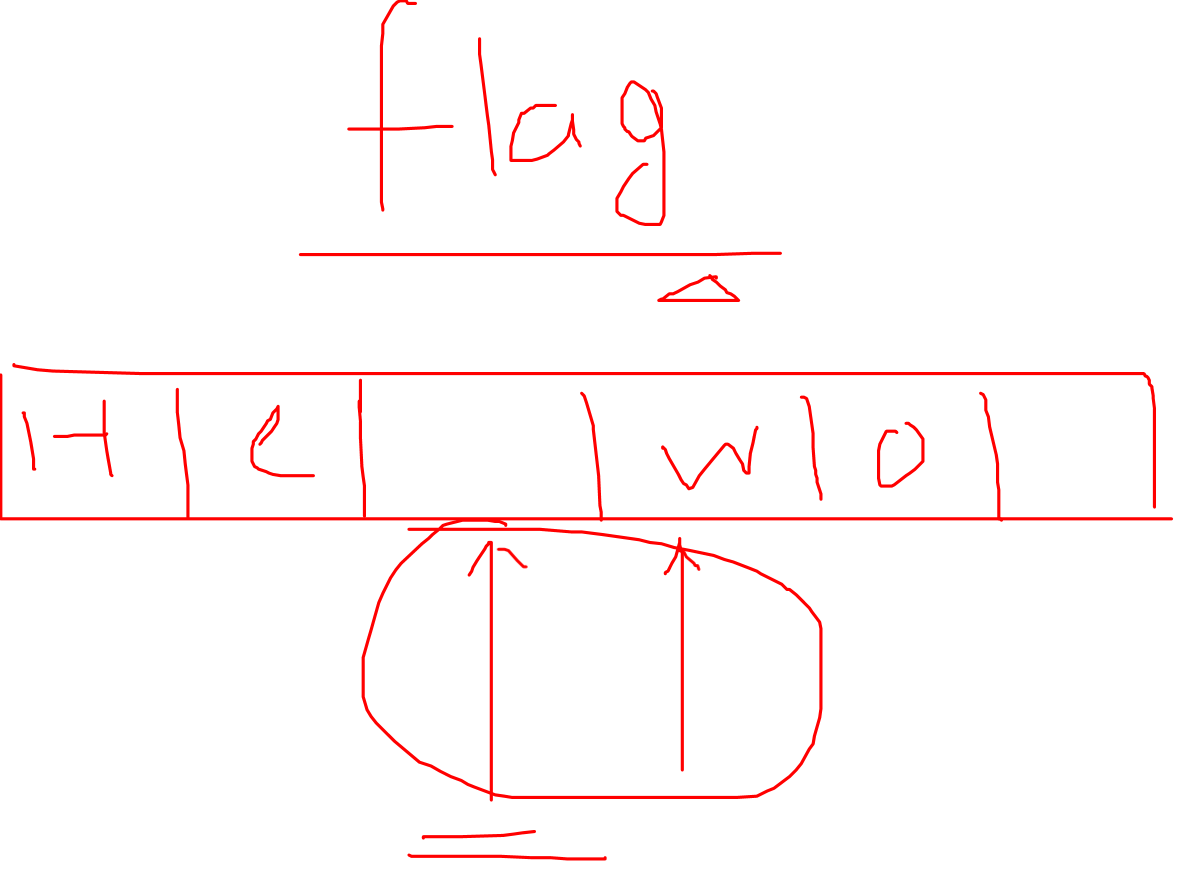 flag
H e w o